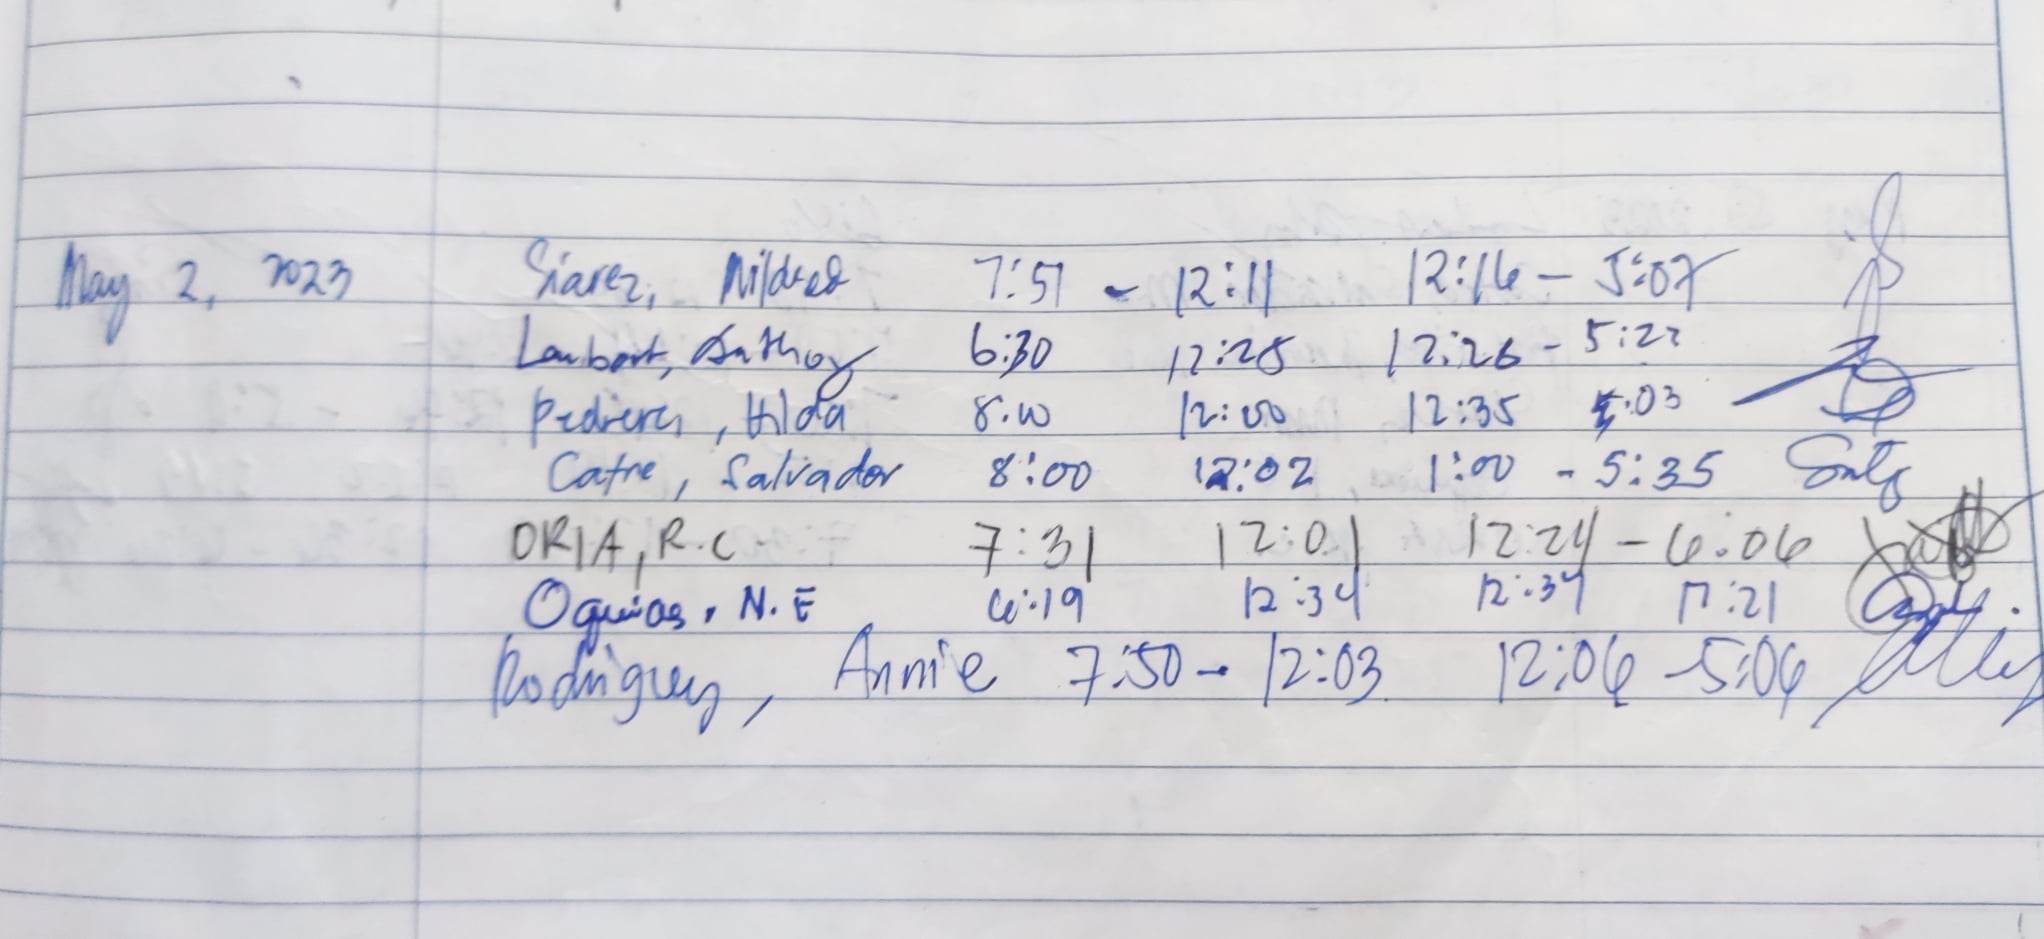 May 2, 2023 Siarez, Mildred 7:51 - 12:11 12:16 - 5:07
Lambart, Anthoy 6:30 12:25 12:26 - 5:22
Hilda 8:00 12:00 12:35 5:03
Catre, Salvador 8:00 12:02 1:00 - 5:35
ORIA, R.C. 7:31 12:01 12:24 - 6:06
Oguias, N.E 6:19 12:34 12:34 17:21
Rodriguez, Annie 7:50 - 12:03 12:06 - 5:06